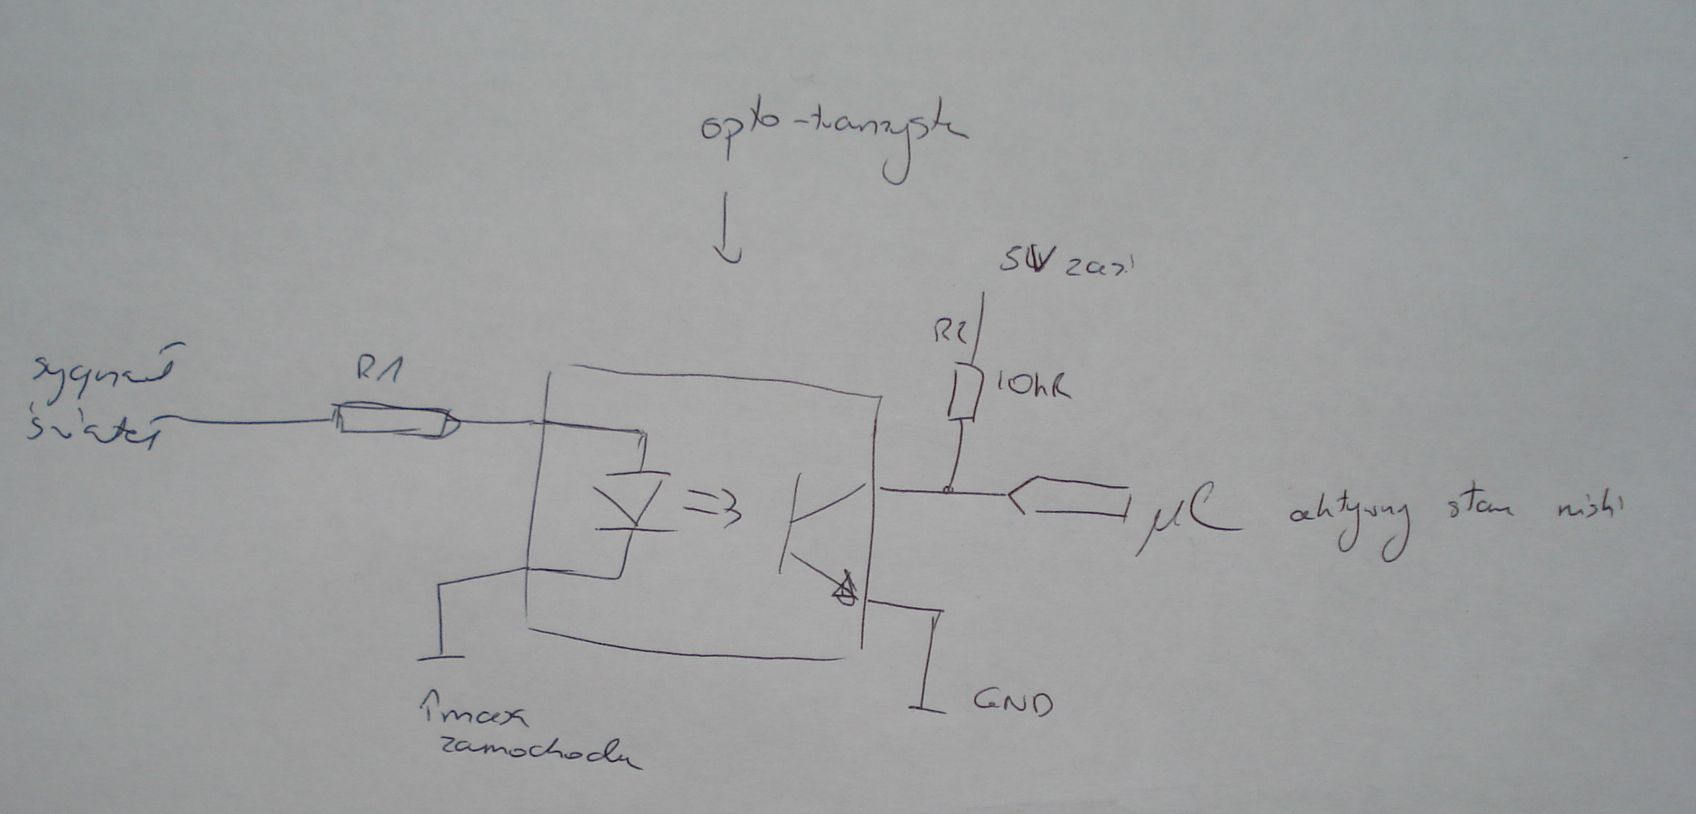 opto-tranzystor
5V zasi
R2
10kR
sygnał
świateł
R1
µC aktywny stan niski
GND
masa
samochodu